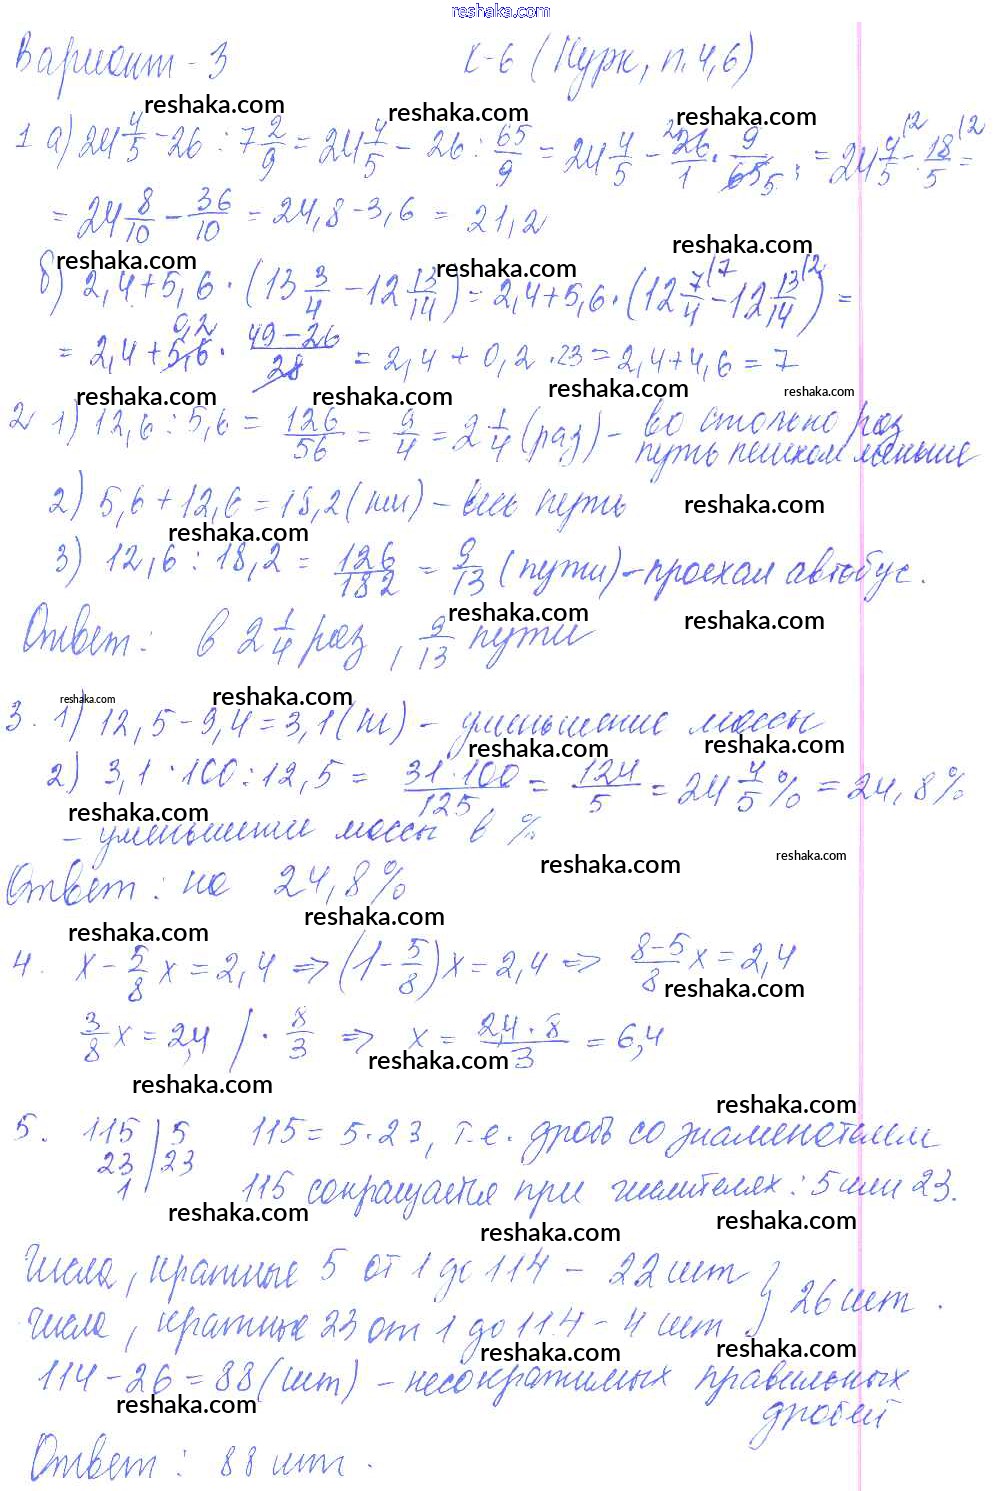 reshaka.com
Вариант - 3 К-6 (Пурк, п. 4,6)
reshaka.com reshaka.com reshaka.com
1 а) 24 4/5 - 26 : 7 2/9 = 24 4/5 - 26 : 65/9 = 24 4/5 - 26/1 · 9/65 = 24 4/5 - 18/5 =
= 24 8/10 - 36/10 = 24,8 - 3,6 = 21,2
reshaka.com reshaka.com reshaka.com
б) 2,4 + 5,6 · (13 3/4 - 12 13/14) = 2,4 + 5,6 · (12 7/4 - 12 13/14) =
= 2,4 + 5,6 · (49 - 26)/28 = 2,4 + 0,2 · 23 = 2,4 + 4,6 = 7
reshaka.com reshaka.com reshaka.com reshaka.com
2 1) 12,6 : 5,6 = 126/56 = 9/4 = 2 1/4 (раз) - во столько раз
путь пешком меньше
2) 5,6 + 12,6 = 18,2 (км) - весь путь
reshaka.com reshaka.com
3) 12,6 : 18,2 = 126/182 = 9/13 (пути) - проехал автобус.
reshaka.com reshaka.com
Ответ: в 2 1/4 раз, 9/13 пути
reshaka.com reshaka.com
3. 1) 12,5 - 9,4 = 3,1 (кг) - уменьшение массы
reshaka.com reshaka.com
2) 3,1 · 100 : 12,5 = 31·100/125 = 124/5 = 24 4/5 % = 24,8 %
reshaka.com
- уменьшение массы в %
reshaka.com reshaka.com
Ответ: на 24,8 %
reshaka.com reshaka.com
4. x - 5/8 x = 2,4 => (1 - 5/8) x = 2,4 => (8-5)/8 x = 2,4
reshaka.com
3/8 x = 2,4 / · 8/3 => x = 2,4 · 8/3 = 6,4
reshaka.com reshaka.com
reshaka.com
5. 115 | 5 115 = 5·23, т.е. дробь со знаменателем
23 | 23
1 | 115 сокращается при числителях: 5 или 23.
reshaka.com reshaka.com reshaka.com
Числа, кратные 5 от 1 до 114 - 22 шт } 26 шт.
числа, кратные 23 от 1 до 114 - 4 шт
reshaka.com reshaka.com
114 - 26 = 88 (шт) - несократимых правильных
дробей
reshaka.com
Ответ: 88 шт.